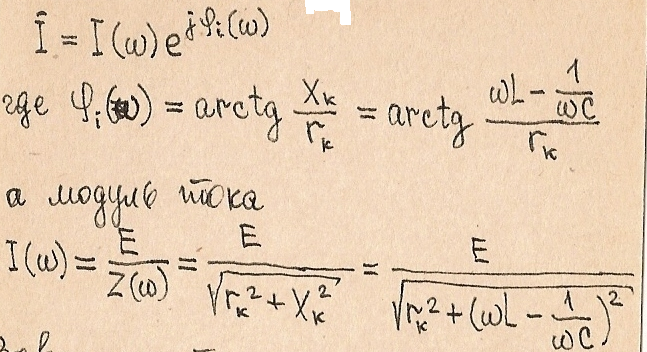 İ = I(ω) e^{jφᵢ(ω)}
где φᵢ(ω) = arctg X_к/r_к = arctg (ωL − 1/ωC)/r_к
а модуль тока
I(ω) = E/Z(ω) = E/√(r_к² + X_к²) = E/√(r_к² + (ωL − 1/ωC)²)